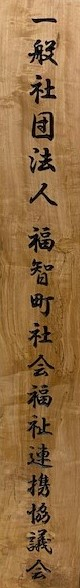 一般社団法人 福智町社会福祉連携協議会